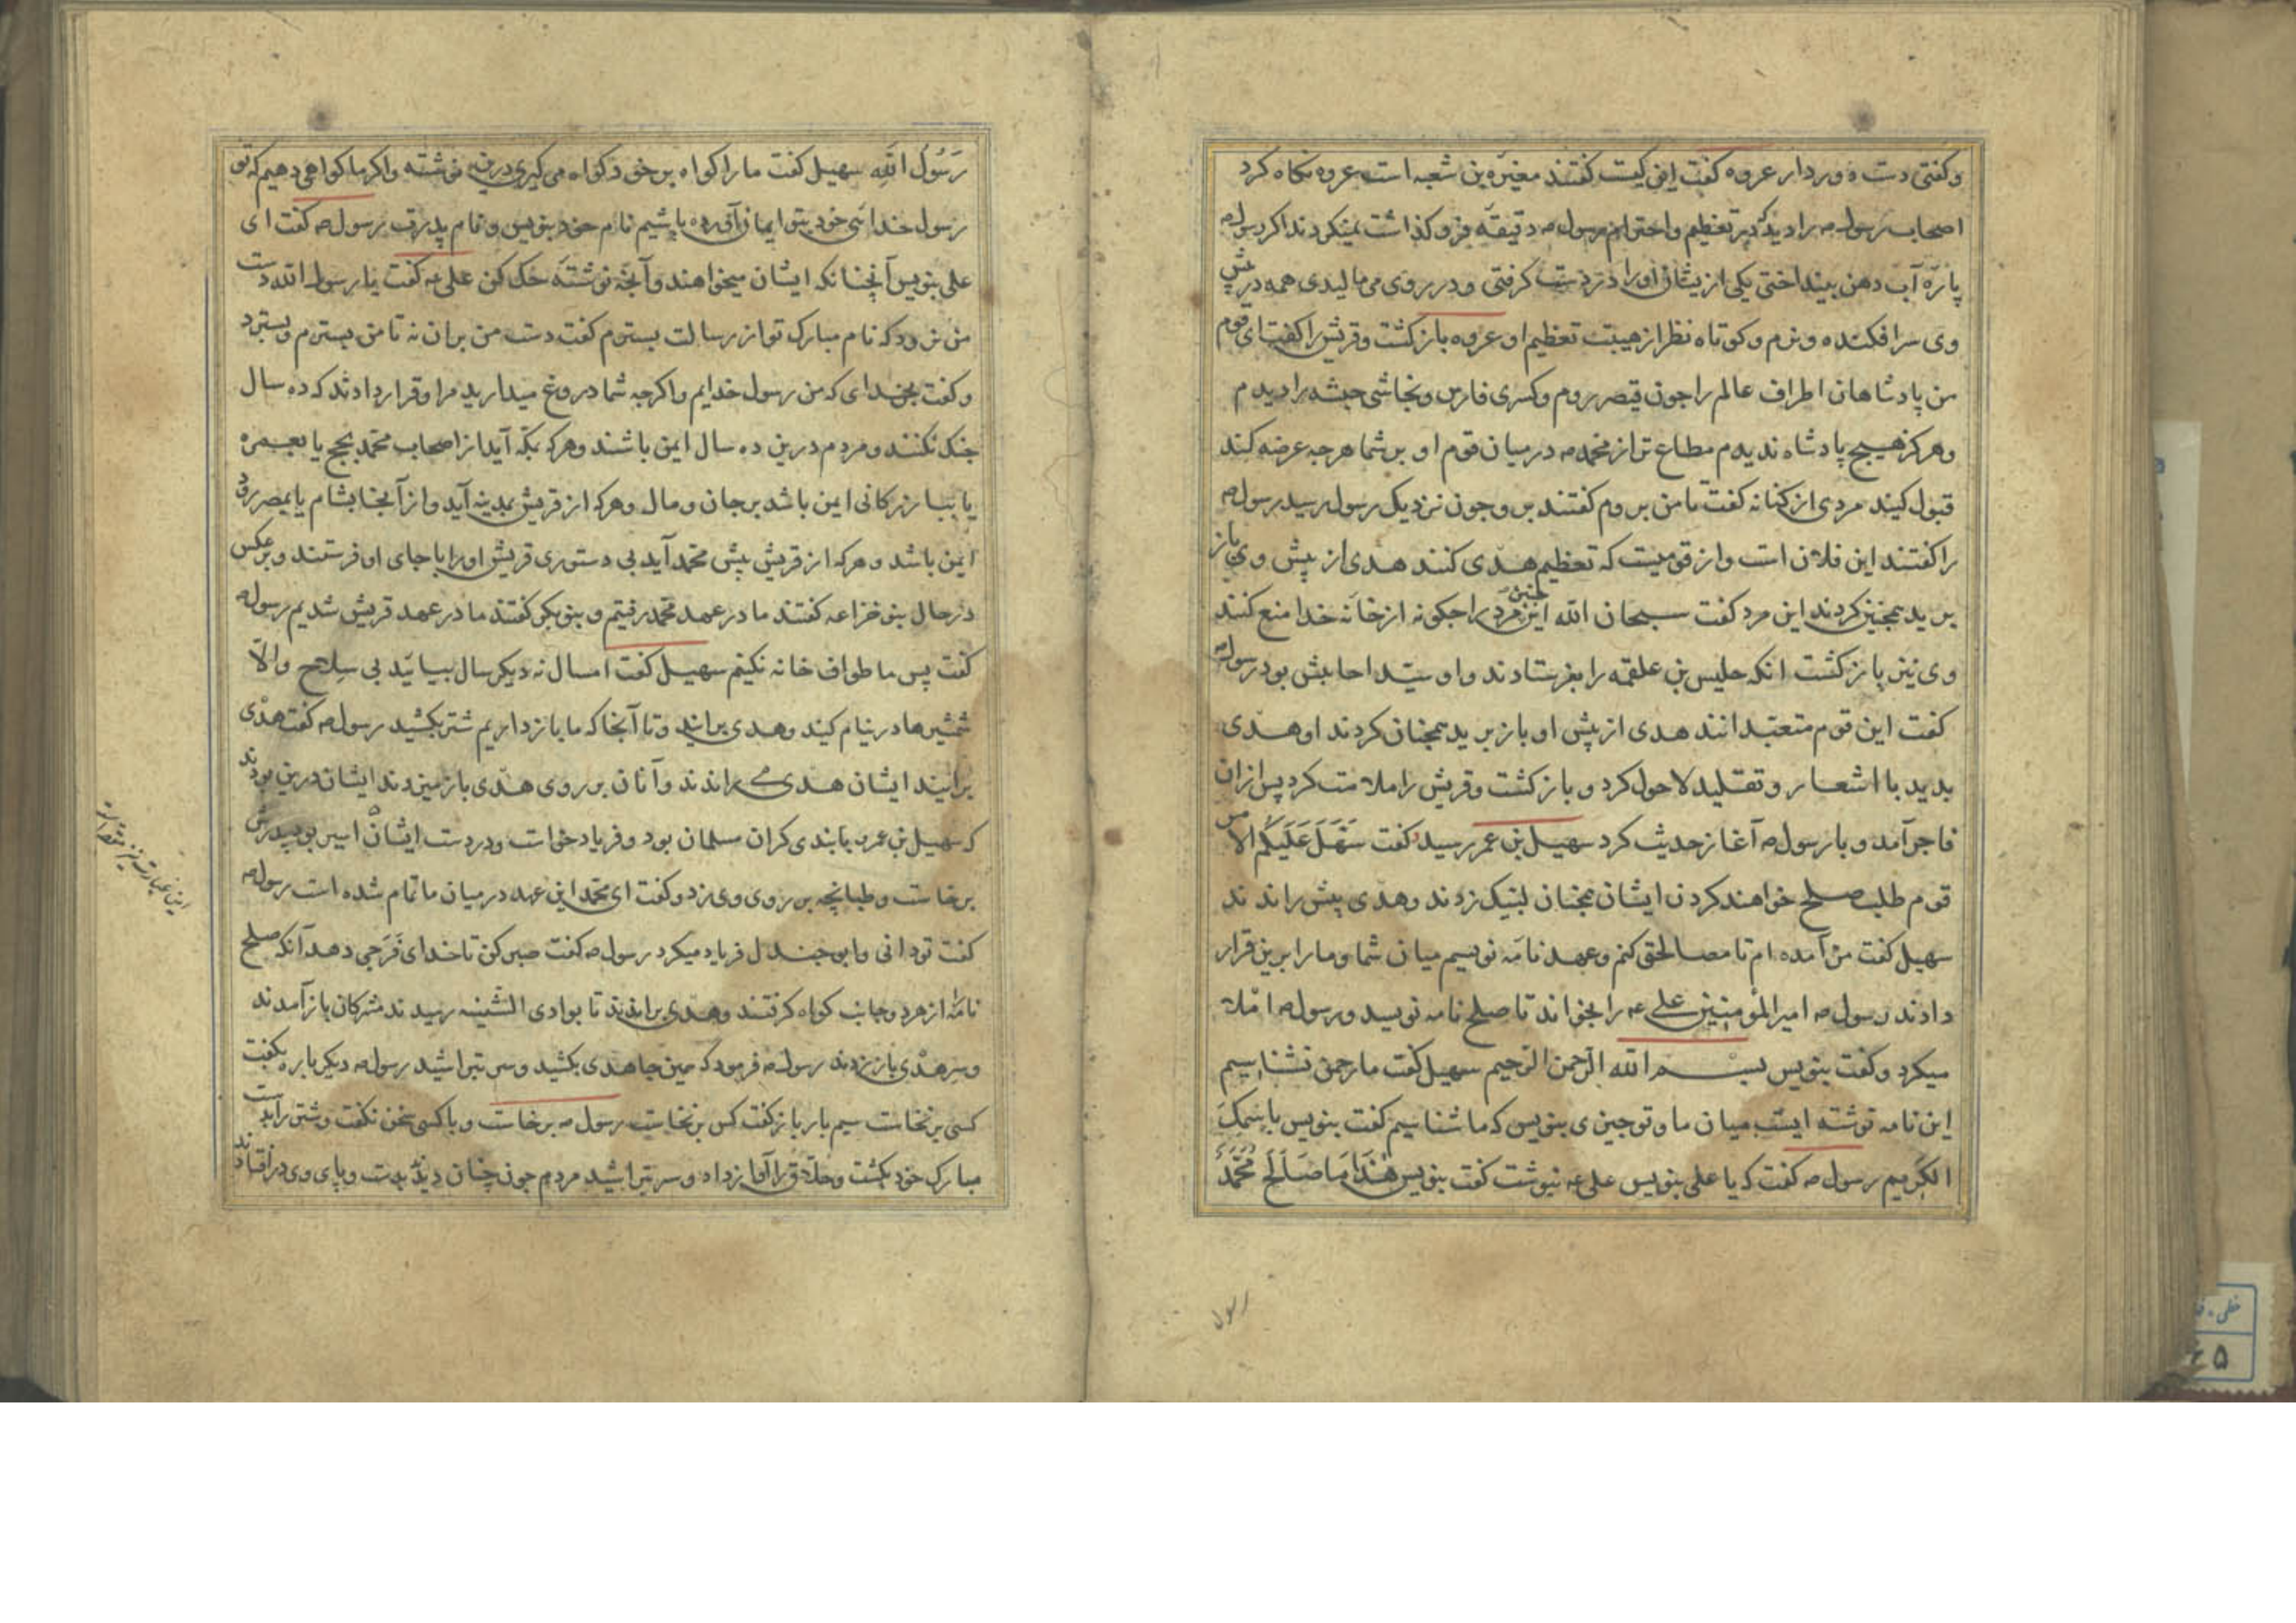 وکفتی دست دور دار عروه کفت این کیست کفتند مغیرة بن شعبه است عروه نکاه کرد
اصحاب رسول صه را دید که در تعظیم واحترام رسول صه دقیقه فرو کذاشت نمیکردند اکر رسول صه
پارهٔ آب دهن بینداختی یکی ازیشان اورا در دست کرفتی ودر روی می مالیدی همه در پیش
وی سرافکنده ونرم وکوتاه نظر از هیبت تعظیم او عروه بازکشت وقریش را کفت ای قوم
من پادشاهان اطراف عالم را جون قیصر روم وکسری فارس ونجاشی حبشه را دیدم
وهرکز هیچ پادشاه ندیدم مطاع تر از محمد صه درمیان قوم او بر شما هرجه عرضه کند
قبول کنید مردی از کنانه کفت تا من بروم کفتند برو جون نزدیک رسول رسید رسول صه
را کفتند این فلان است واز قومیست که تعظیم هدی کنند هدی از پیش وی باز
برید همجنین کردند این مرد کفت سبحان الله این جنین مرد را جکونه از خانه خدا منع کنند
وی نیز بازکشت انکه حلیس بن علقمه را بفرستادند واو سید احابش بود رسول صه
کفت این قوم متعبدانند هدی از پیش او باز برید همجنان کردند او هدی
بدید با اشعار وتقلید لاحول کرد و بازکشت وقریش را ملامت کرد پس ازان
فاجر آمد و با رسول صه آغاز حدیث کرد سهیل بن عمر رسید کفت سهل علیکم الامر
قوم طلب صلح خواهند کردن ایشان همجنان لبیک زدند وهدی پیش راندند
سهیل کفت من آمده ام تا مصالحت کنم وعهد نامه نویسم میان شما وما را برین قرار
دادند رسول صه امیرالمؤمنین علی عه را بخواند تا صلح نامه نویسد ورسول صه املا
میکرد وکفت بنویس بسم الله الرحمن الرحیم سهیل کفت ما رحمن نشناسیم
این نامه نوشته ایست میان ما وتو جیزی بنویس که ما شناسیم کفت بنویس باسمک
الکریم رسول صه کفت که یا علی بنویس علی عه نبوشت کفت بنویس هذا ما صالح محمد
رسول
رسول الله سهیل کفت ما را کواه بر خود کواه می کیری درین نوشته واکر ما کواهی دهیم که تو
رسول خدائی خود بتو ایمان آورده باشیم نام خود بنویس ونام پدرت رسول صه کفت ای
علی بنویس آنجنانکه ایشان میخواهند وآنچه نوشتهٔ حک کن علی عه کفت یا رسول الله دست
من نرود که نام مبارک تو از رسالت بسترم کفت دست من بران نه تا من بسترم وبسترد
وکفت بخدای که من رسول خدایم واکرجه شما دروغ میدارید مرا وقرار دادند که ده سال
جنک نکنند ومردم درین ده سال ایمن باشند وهرکه بمکه آید از اصحاب محمد بحج یا بعمره
یا ببازرکانی ایمن باشد بر جان ومال وهرکه از قریش بمدینه آید واز آنجا بشام یا بمصر رود
ایمن باشد وهرکه از قریش پیش محمد آید بی دستوری قریش اورا با جای او فرستند وبرعکس
درحال بنو خزاعه کفتند ما در عهد محمد رفتیم و بنو بکر کفتند ما در عهد قریش شدیم رسول صه
کفت پس ما طواف خانه نکنیم سهیل کفت امسال نه دیکر سال بیائید بی سلاح والا
شمشیرها در نیام کنید وهدی برانید وتا آنجا که ما بازداریم شتر بکشید رسول صه کفت هدی
برانید ایشان هدی می راندند وآنان بر روی هدی باز میزدند ایشان درین بودند
که سهیل بن عمرو بابندی کران مسلمان بود وفریاد خواست ودر دست ایشان اسیر بود پدرش
برخاست وطبانچه بر روی وی زد وکفت ای محمد این عهد درمیان ما تمام شده است رسول صه
کفت تو دانی وابو جندل فریاد میکرد رسول صه کفت صبر کن تا خدای فرجی دهد آنکه صلح
نامه را از هر دو جانب کواه کرفتند وهدی براندند تا بوادی الثنیه رسیدند مشرکان باز آمدند
وسر هدی باز زدند رسول صه فرمود که همین جا هدی بکشید وسر بتراشید رسول صه دیکر باره بکفت
کسی برنخاست سیم بار باز کفت کس برنخاست رسول صه برخاست و با کسی سخن نکفت وشتر را بدست
مبارک خود بکشت وحلاق را آواز داد وسر بتراشید مردم جون چنان دیدند بدست وپای وی درافتادند